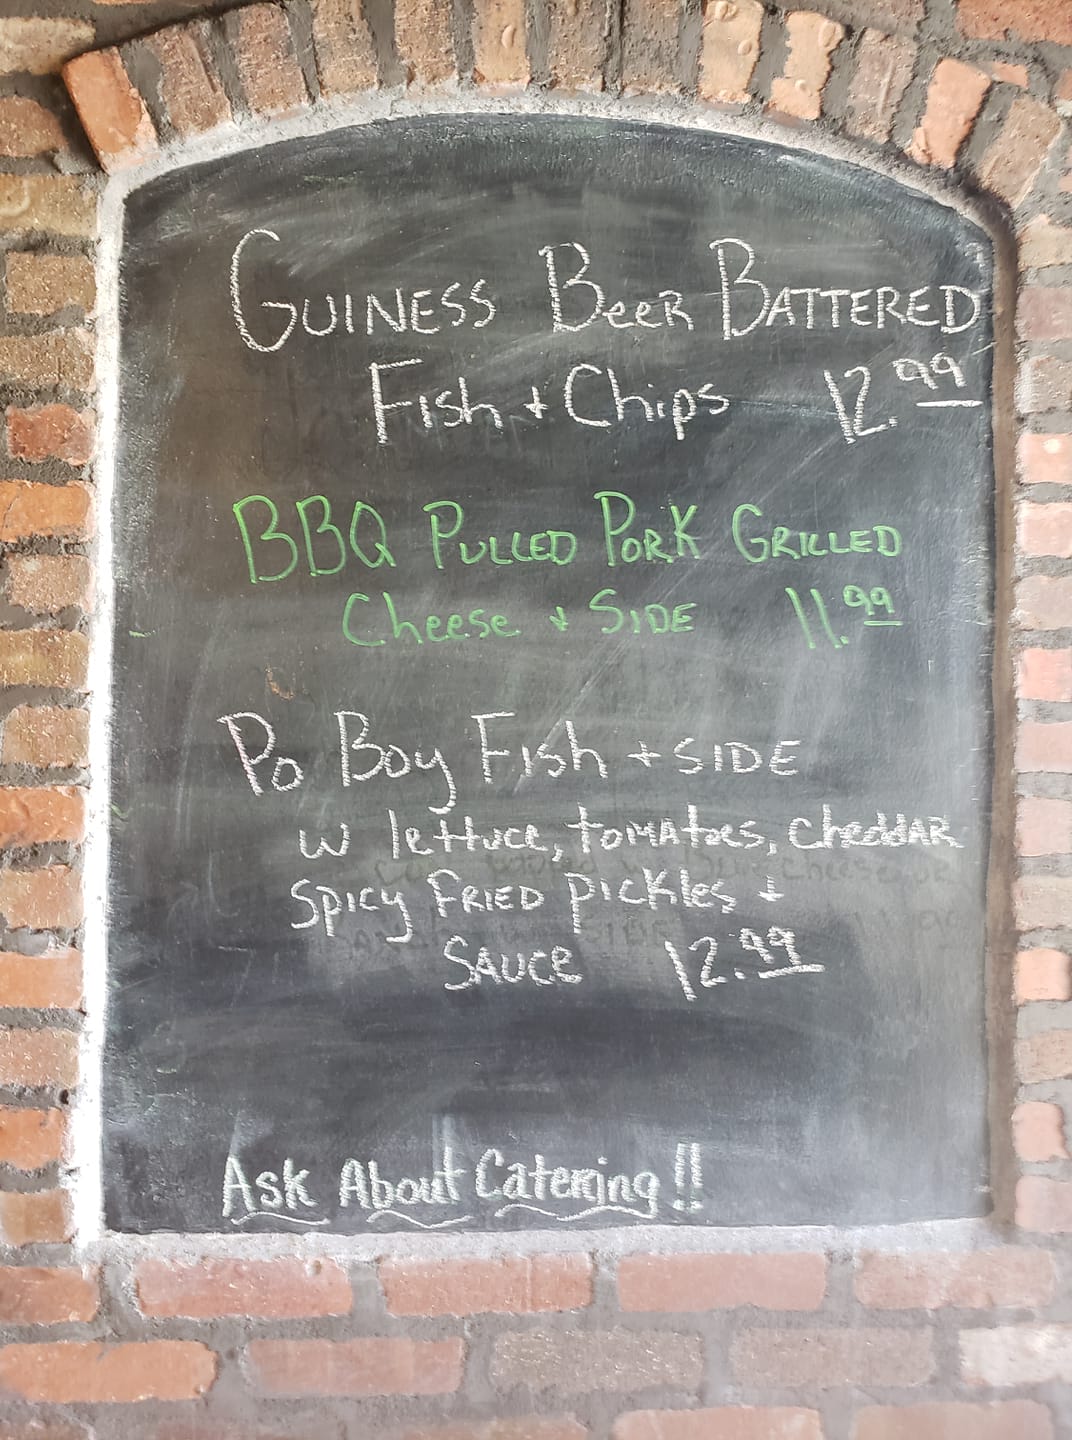 GUINESS BeeR BATTERED
FISh + Chips 12.99
BBQ PULLED PORK GRILLED
Cheese + SIDE 11.99
Po Boy FISh + SIDE
w lettuce, TOMAToes, CheDDAR
SPICY FRIED PICKles +
SAUCe 12.99
Ask About Catering!!